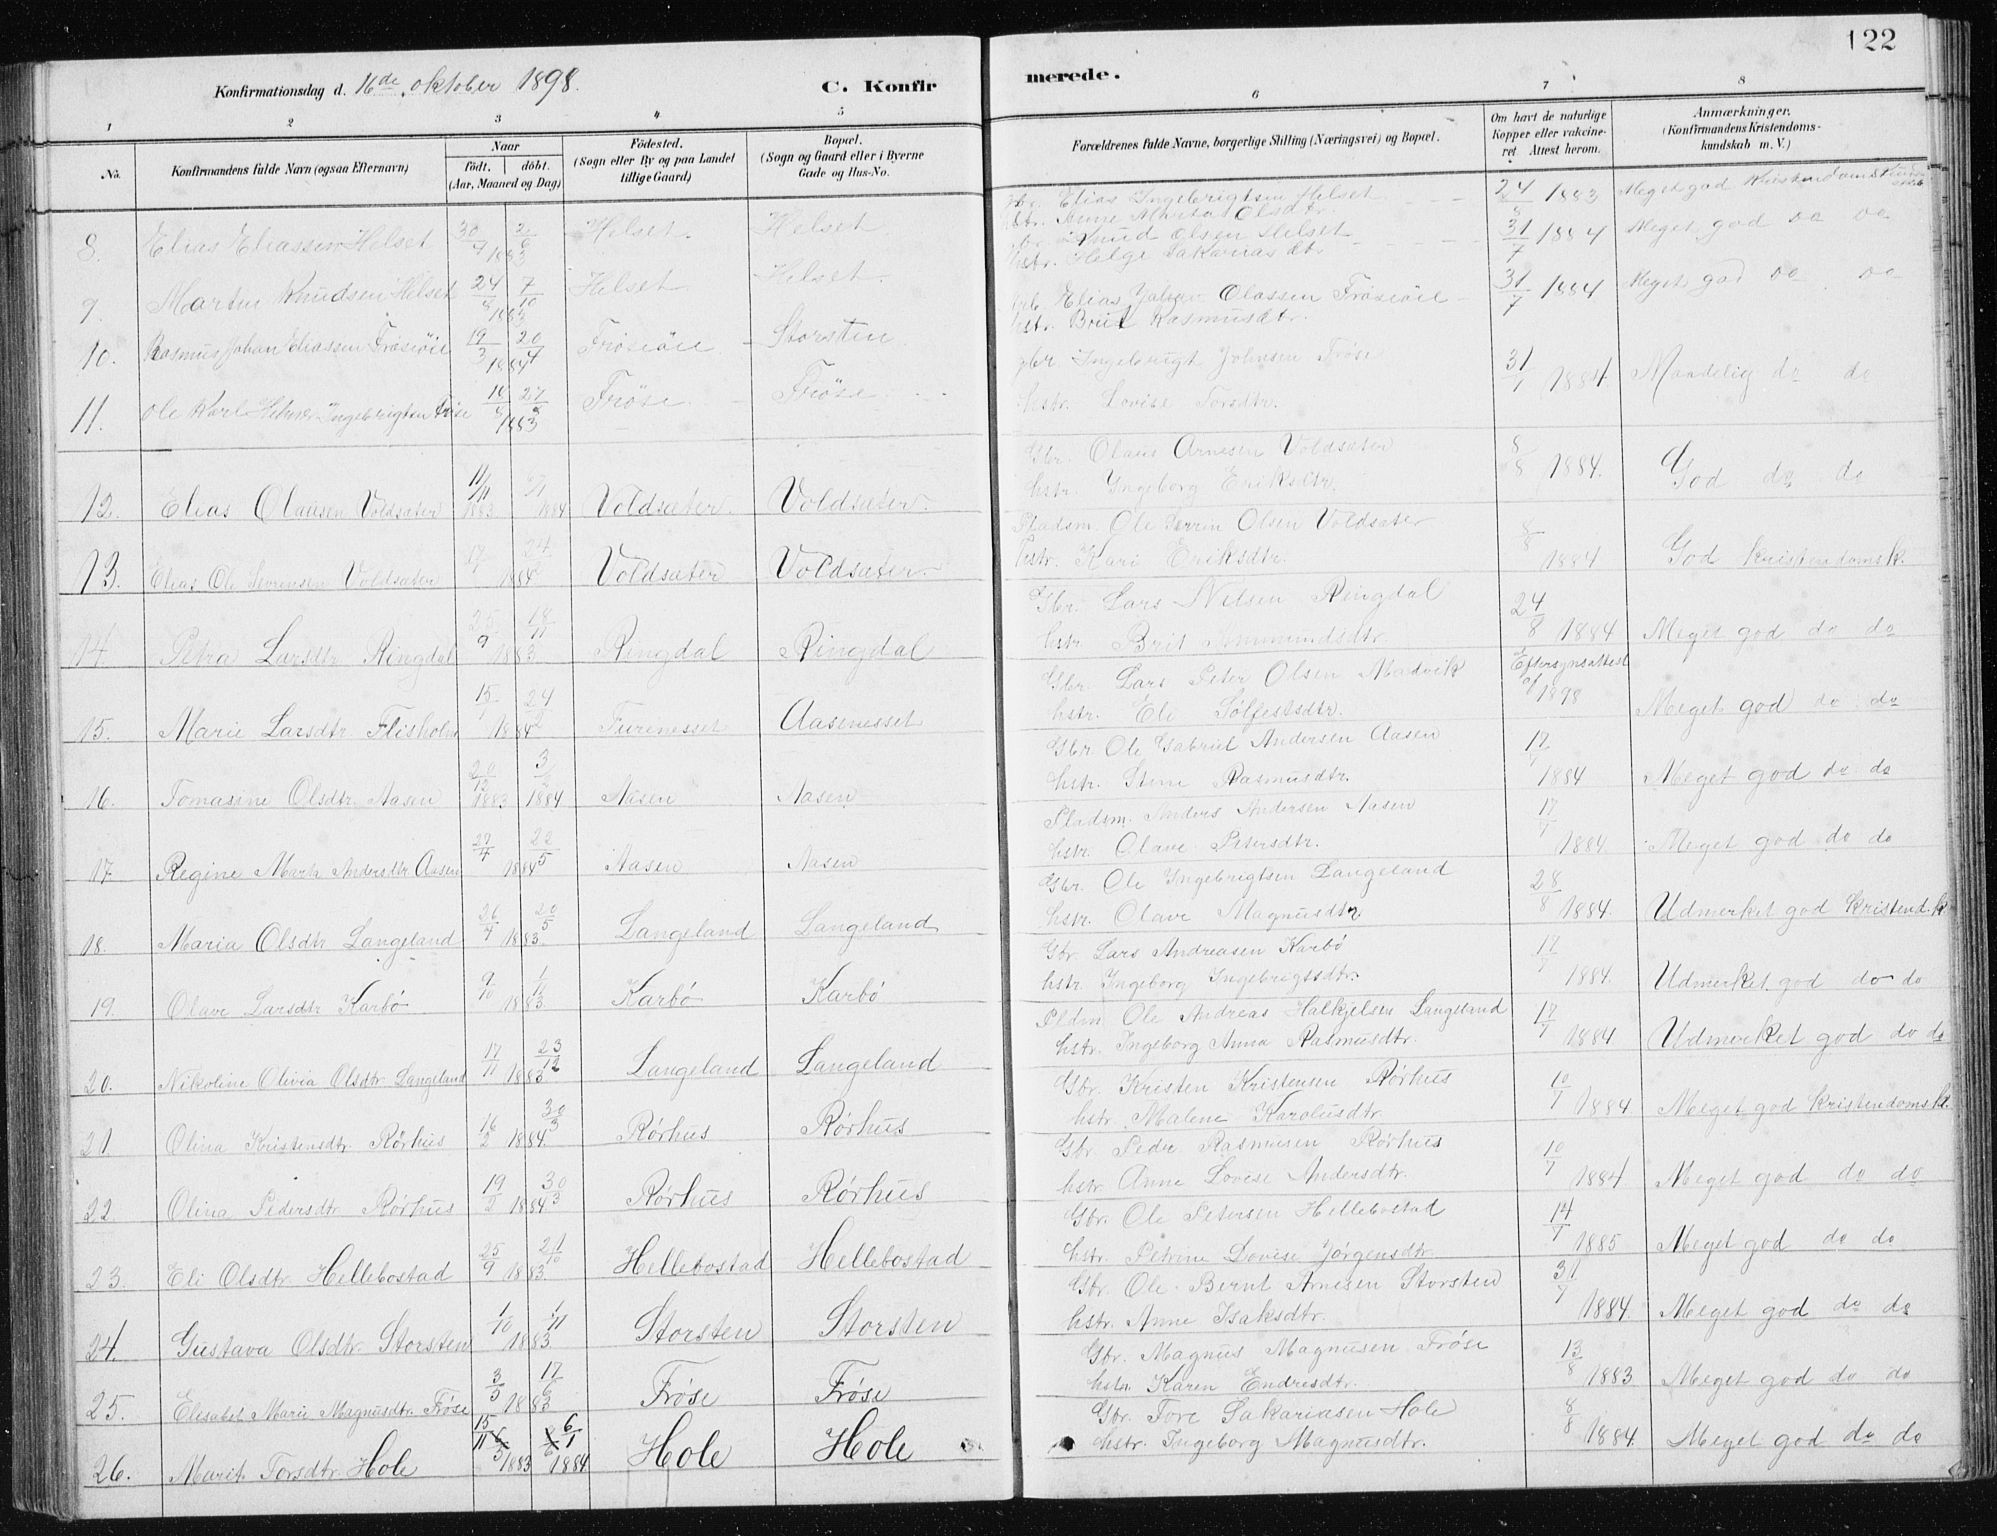 122
Konfirmationsdag d. 16de oktober 1898. C. Konfirmerede.
1 2 3 4 5 6 7 8
No. Konfirmandens fulde Navn (ogsaa Efternavn) Naar Födt. döbt. (Aar, Maaned og Dag) Födested. (Sogn eller By og paa Landet tillige Gaard) Bopæl. (Sogn og Gaard eller i Byerne Gade og Hus-No. Forældrenes fulde Navne, borgerlige Stilling (Næringsvei) og Bopæl. Om havt de naturlige Kopper eller vakcineret. Attest herom. Anmærkninger. (Konfirmandens Kristendomskundskab m. V.)
Elias Ingebrigtsen Helset 24/8 1883 Meget god Kristendomskundskab
8. Elias Eliassen Helset 1883 Helset. Helset. Anne Marta Olsdtr.
Knud Olsen Helset 31/7 1884 Meget god do do
9. Martin Knudsen Helset 24/8 7/10 1883 Helset Helset. hstr. Helge Sakariasdtr
Elias Johan Olassen Frøsiöie 31/7 1884 Meget god do do
10. Rasmus Johan Eliassen Frøsiöie 19/3 20/4 1884 Frøsiöie Storsten hstr. Brit Rasmusdtr.
gbr Ingebrigt Johnsen Frøse 31/7 1884. Maadelig do do
11. Ole Karl Helmer Ingebrigtsen Frøse 1883 Frøse. Frøse hstr. Lovise Torsdtr.
Gbr. Olaus Arnesen Voldsæter 8/8 1884. God do do
12. Elias Olausen Voldsæter 11/11 1883 1884 Voldsæter. Voldsæter. hstr. Ingeborg Eriksdtr.
Pladsm. Ole Severin Olsen Voldsæter 8/8 1884 God Kristendomsk.
13. Elias Ole Severinsen Voldsæter 24/2 1884 Voldsæter Voldsæter. hstr. Kari Eriksdtr.
Gbr. Lars Nilsen Ringdal 24/8 1884 Meget god do do
14. Petra Larsdtr Ringdal 25/9 18/11 1883 Ringdal Ringdal hstr. Brit Ammundsdtr.
Gbr. Lars Peter Olsen Madvik Eftersynsattest af 1898 Meget god do do
15. Marie Larsdtr Flisholm 15/1 24/2 1884 Furenesset Aasenesset hstr. Eli Sølfestsdtr.
Gbr. Ole Gabriel Andersen Aasen 17/7 1884 Meget god do do
16. Tomasine Olsdtr. Aasen 20/12 1883 3/2 1884 Aasen Aasen hstr. Stine Rasmusdtr.
Pladsm. Anders Andersen Aasen 17/7 1884 Meget god do do
17 Regine Marta Andersdtr Aasen 27/4 22/5 1884 Aasen Aasen hstr. Olave Petersdtr.
Gbr. Ole Ingebrigtsen Langeland 28/8 1884. Udmerket god Kristend.k
18. Maria Olsdtr Langeland 26/4 20/5 1883 Langeland Langeland hstr. Olave Magnusdtr
Gbr. Lars Andreasen Karbø 17/7 1884. Udmerket god do do
19. Olave Larsdtr Karbø 9/10 1/11 1883 Karbø Karbø hstr. Ingeborg Ingebrigtsdtr.
Pldm. Ole Andreas Halkjelsen Langeland 17/7 1884 Udmerket god do do
20. Nikoline Olivia Olsdtr Langeland 17/11 23/12 1883 Langeland Langeland hstr. Ingeborg Anna Rasmusdtr.
Gbr. Kristen Kristensen Rørhus 10/7 1884 Meget god Kristendomsk.
21. Olina Kristensdtr. Rørhus 16/2 30/3 1884. Rørhus Rørhus hstr. Malene Karolusdtr
Gbr. Peder Rasmusen Rørhus 10/7 1884. Meget god do do
22. Olina Pedersdtr Rørhus 19/2 30/3 1884 Rørhus Rørhus hstr. Anne Lovise Andersdtr.
Gbr. Ole Petersen Hellebostad 14/7 1885 Meget god do do
23. Eli Olsdtr. Hellebostad 25/9 21/10 1883 Hellebostad Hellebostad hstr. Petrine Lovise Jørgensdtr.
Gbr. Ole Bernt Arnesen Storsten 31/7 1884. Meget god do do
24. Gustava Olsdtr. Storsten 1/10 1/11 1883 Storsten Storsten hstr. Anne Isaksdtr.
Gbr. Magnus Magnusen Frøse 13/8 1883 Meget god do do
25. Elisabet Marie Magnusdtr. Frøse 3/5 17/6 1883 Frøse Frøse hstr. Karen Endresdtr.
Gbr. Tore Sakariasen Hole 8/8 1884. Meget god do do
26. Marit Torsdtr Hole 15/11 1883 6/1 1884 Hole Hole hstr. Ingeborg Magnusdtr.